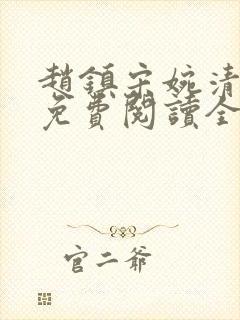 趙鎮宋婉清
免費閱讀全
官二爺